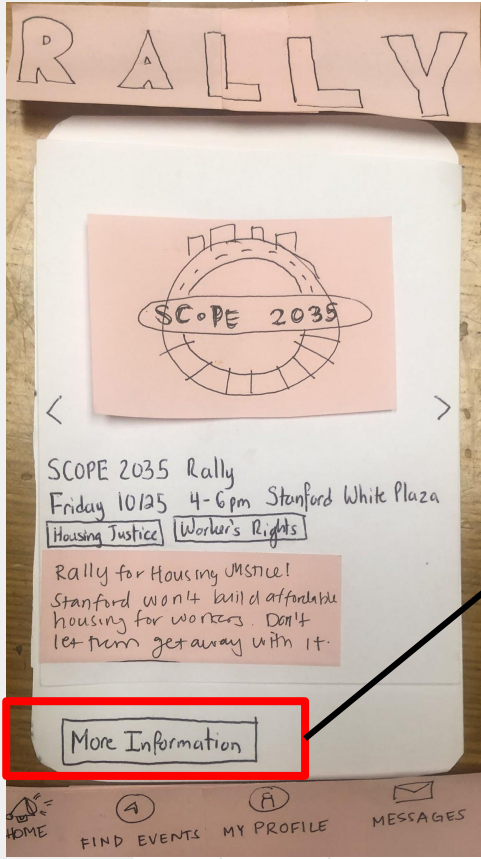 RALLY
SCOPE 2035
< >
SCOPE 2035 Rally
Friday 10/25 4-6pm Stanford White Plaza
Housing Justice Worker's Rights
Rally for Housing Justice!
Stanford won't build affordable
housing for workers. Don't
let them get away with it.
More Information
HOME FIND EVENTS MY PROFILE MESSAGES